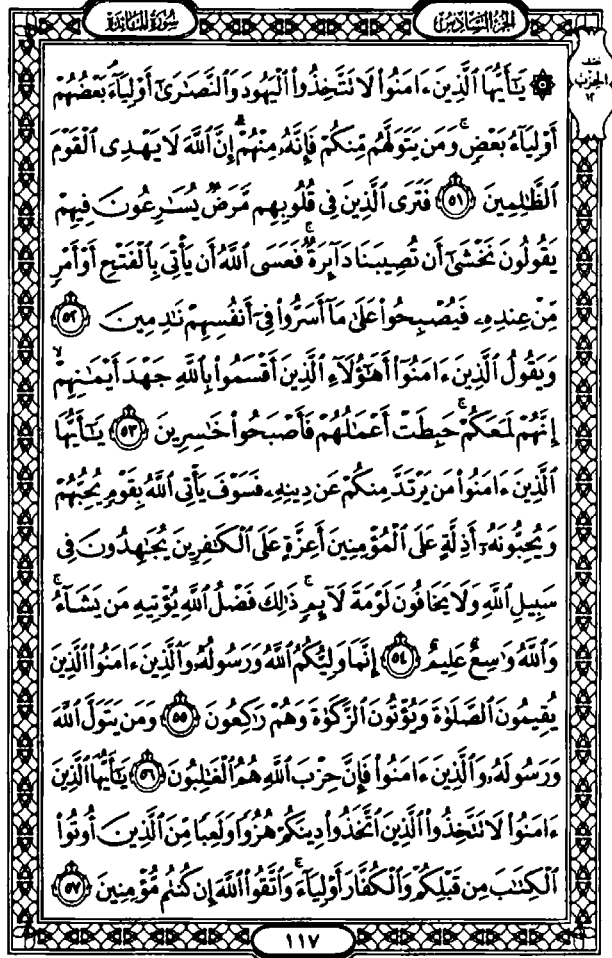 سُورَةُ المَائدَةِ
الجُزْءُ السَّادِسُ
نصف
الحزب
١٢
۞ يَٰٓأَيُّهَا ٱلَّذِينَ ءَامَنُواْ لَا تَتَّخِذُواْ ٱلْيَهُودَ وَٱلنَّصَٰرَىٰٓ أَوْلِيَآءَۘ بَعْضُهُمْ
أَوْلِيَآءُ بَعْضٍۚ وَمَن يَتَوَلَّهُم مِّنكُمْ فَإِنَّهُۥ مِنْهُمْۗ إِنَّ ٱللَّهَ لَا يَهْدِى ٱلْقَوْمَ
ٱلظَّٰلِمِينَ ٥١ فَتَرَى ٱلَّذِينَ فِى قُلُوبِهِم مَّرَضٌ يُسَٰرِعُونَ فِيهِمْ
يَقُولُونَ نَخْشَىٰٓ أَن تُصِيبَنَا دَآئِرَةٌۚ فَعَسَى ٱللَّهُ أَن يَأْتِىَ بِٱلْفَتْحِ أَوْ أَمْرٍ
مِّنْ عِندِهِۦ فَيُصْبِحُواْ عَلَىٰ مَآ أَسَرُّواْ فِىٓ أَنفُسِهِمْ نَٰدِمِينَ ٥٢
وَيَقُولُ ٱلَّذِينَ ءَامَنُوٓاْ أَهَٰٓؤُلَآءِ ٱلَّذِينَ أَقْسَمُواْ بِٱللَّهِ جَهْدَ أَيْمَٰنِهِمْۙ
إِنَّهُمْ لَمَعَكُمْۚ حَبِطَتْ أَعْمَٰلُهُمْ فَأَصْبَحُواْ خَٰسِرِينَ ٥٣ يَٰٓأَيُّهَا
ٱلَّذِينَ ءَامَنُواْ مَن يَرْتَدَّ مِنكُمْ عَن دِينِهِۦ فَسَوْفَ يَأْتِى ٱللَّهُ بِقَوْمٍ يُحِبُّهُمْ
وَيُحِبُّونَهُۥٓ أَذِلَّةٍ عَلَى ٱلْمُؤْمِنِينَ أَعِزَّةٍ عَلَى ٱلْكَٰفِرِينَ يُجَٰهِدُونَ فِى
سَبِيلِ ٱللَّهِ وَلَا يَخَافُونَ لَوْمَةَ لَآئِمٍۚ ذَٰلِكَ فَضْلُ ٱللَّهِ يُؤْتِيهِ مَن يَشَآءُۚ
وَٱللَّهُ وَٰسِعٌ عَلِيمٌ ٥٤ إِنَّمَا وَلِيُّكُمُ ٱللَّهُ وَرَسُولُهُۥ وَٱلَّذِينَ ءَامَنُواْ ٱلَّذِينَ
يُقِيمُونَ ٱلصَّلَوٰةَ وَيُؤْتُونَ ٱلزَّكَوٰةَ وَهُمْ رَٰكِعُونَ ٥٥ وَمَن يَتَوَلَّ ٱللَّهَ
وَرَسُولَهُۥ وَٱلَّذِينَ ءَامَنُواْ فَإِنَّ حِزْبَ ٱللَّهِ هُمُ ٱلْغَٰلِبُونَ ٥٦ يَٰٓأَيُّهَا ٱلَّذِينَ
ءَامَنُواْ لَا تَتَّخِذُواْ ٱلَّذِينَ ٱتَّخَذُواْ دِينَكُمْ هُزُوًا وَلَعِبًا مِّنَ ٱلَّذِينَ أُوتُواْ
ٱلْكِتَٰبَ مِن قَبْلِكُمْ وَٱلْكُفَّارَ أَوْلِيَآءَۚ وَٱتَّقُواْ ٱللَّهَ إِن كُنتُم مُّؤْمِنِينَ ٥٧
١١٧